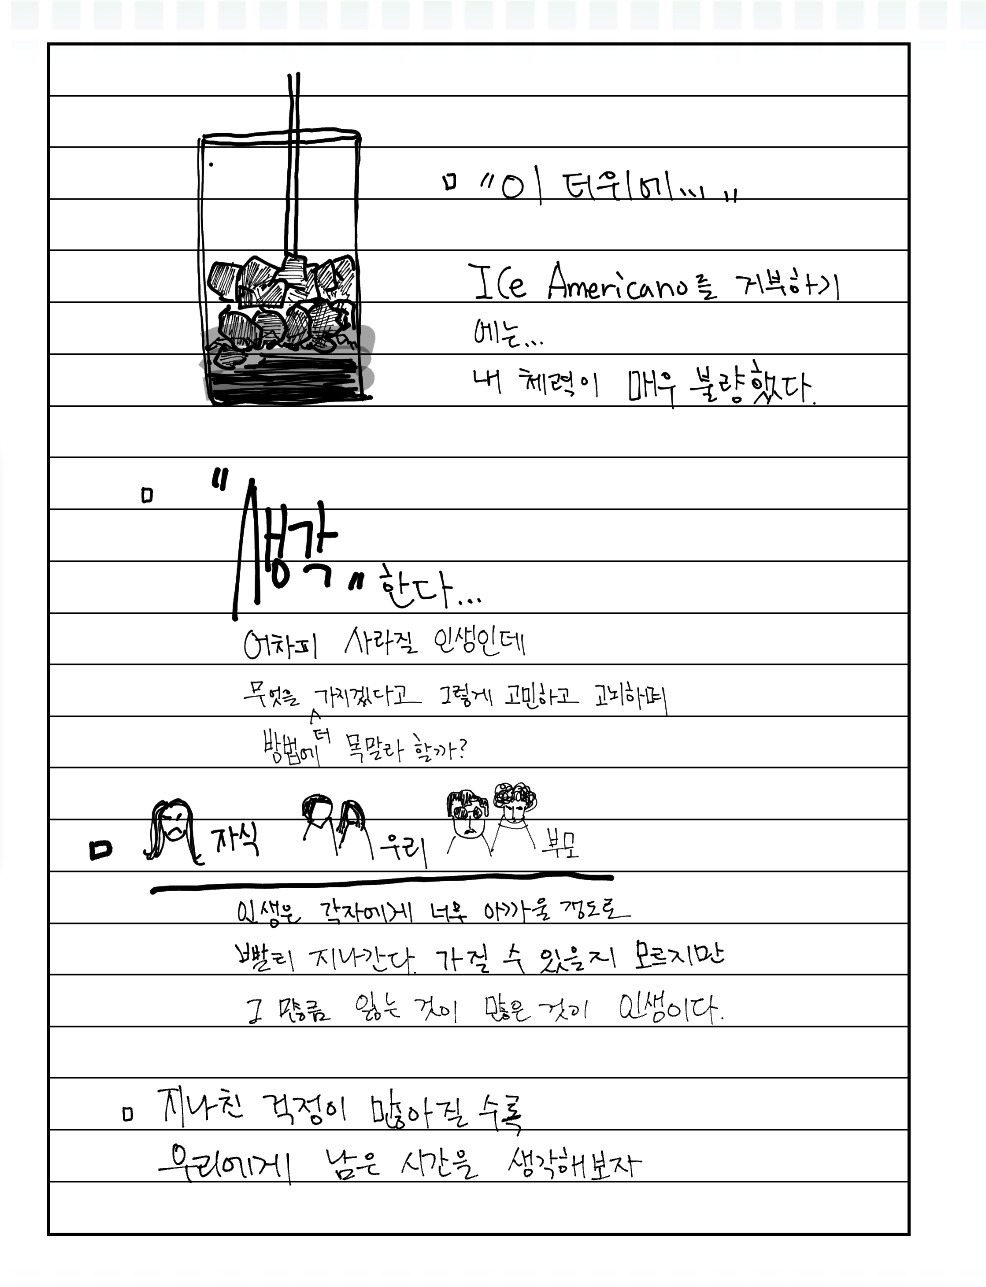 "이 더위에..."
ICe Americano를 거부하기
에는...
내 체력이 매우 불량했다.
"생각" 한다...
어차피 사라질 인생인데
무엇을 가지겠다고 그렇게 고민하고 고뇌하며
방법에 더 목말라 할까?
자식 우리 부모
인생은 각자에게 너무 아까울 정도로
빨리 지나간다. 가질 수 있을지 모르지만
그 만큼 잃는 것이 많은 것이 인생이다.
지나친 걱정이 많아질 수록
우리에게 남은 시간을 생각해보자